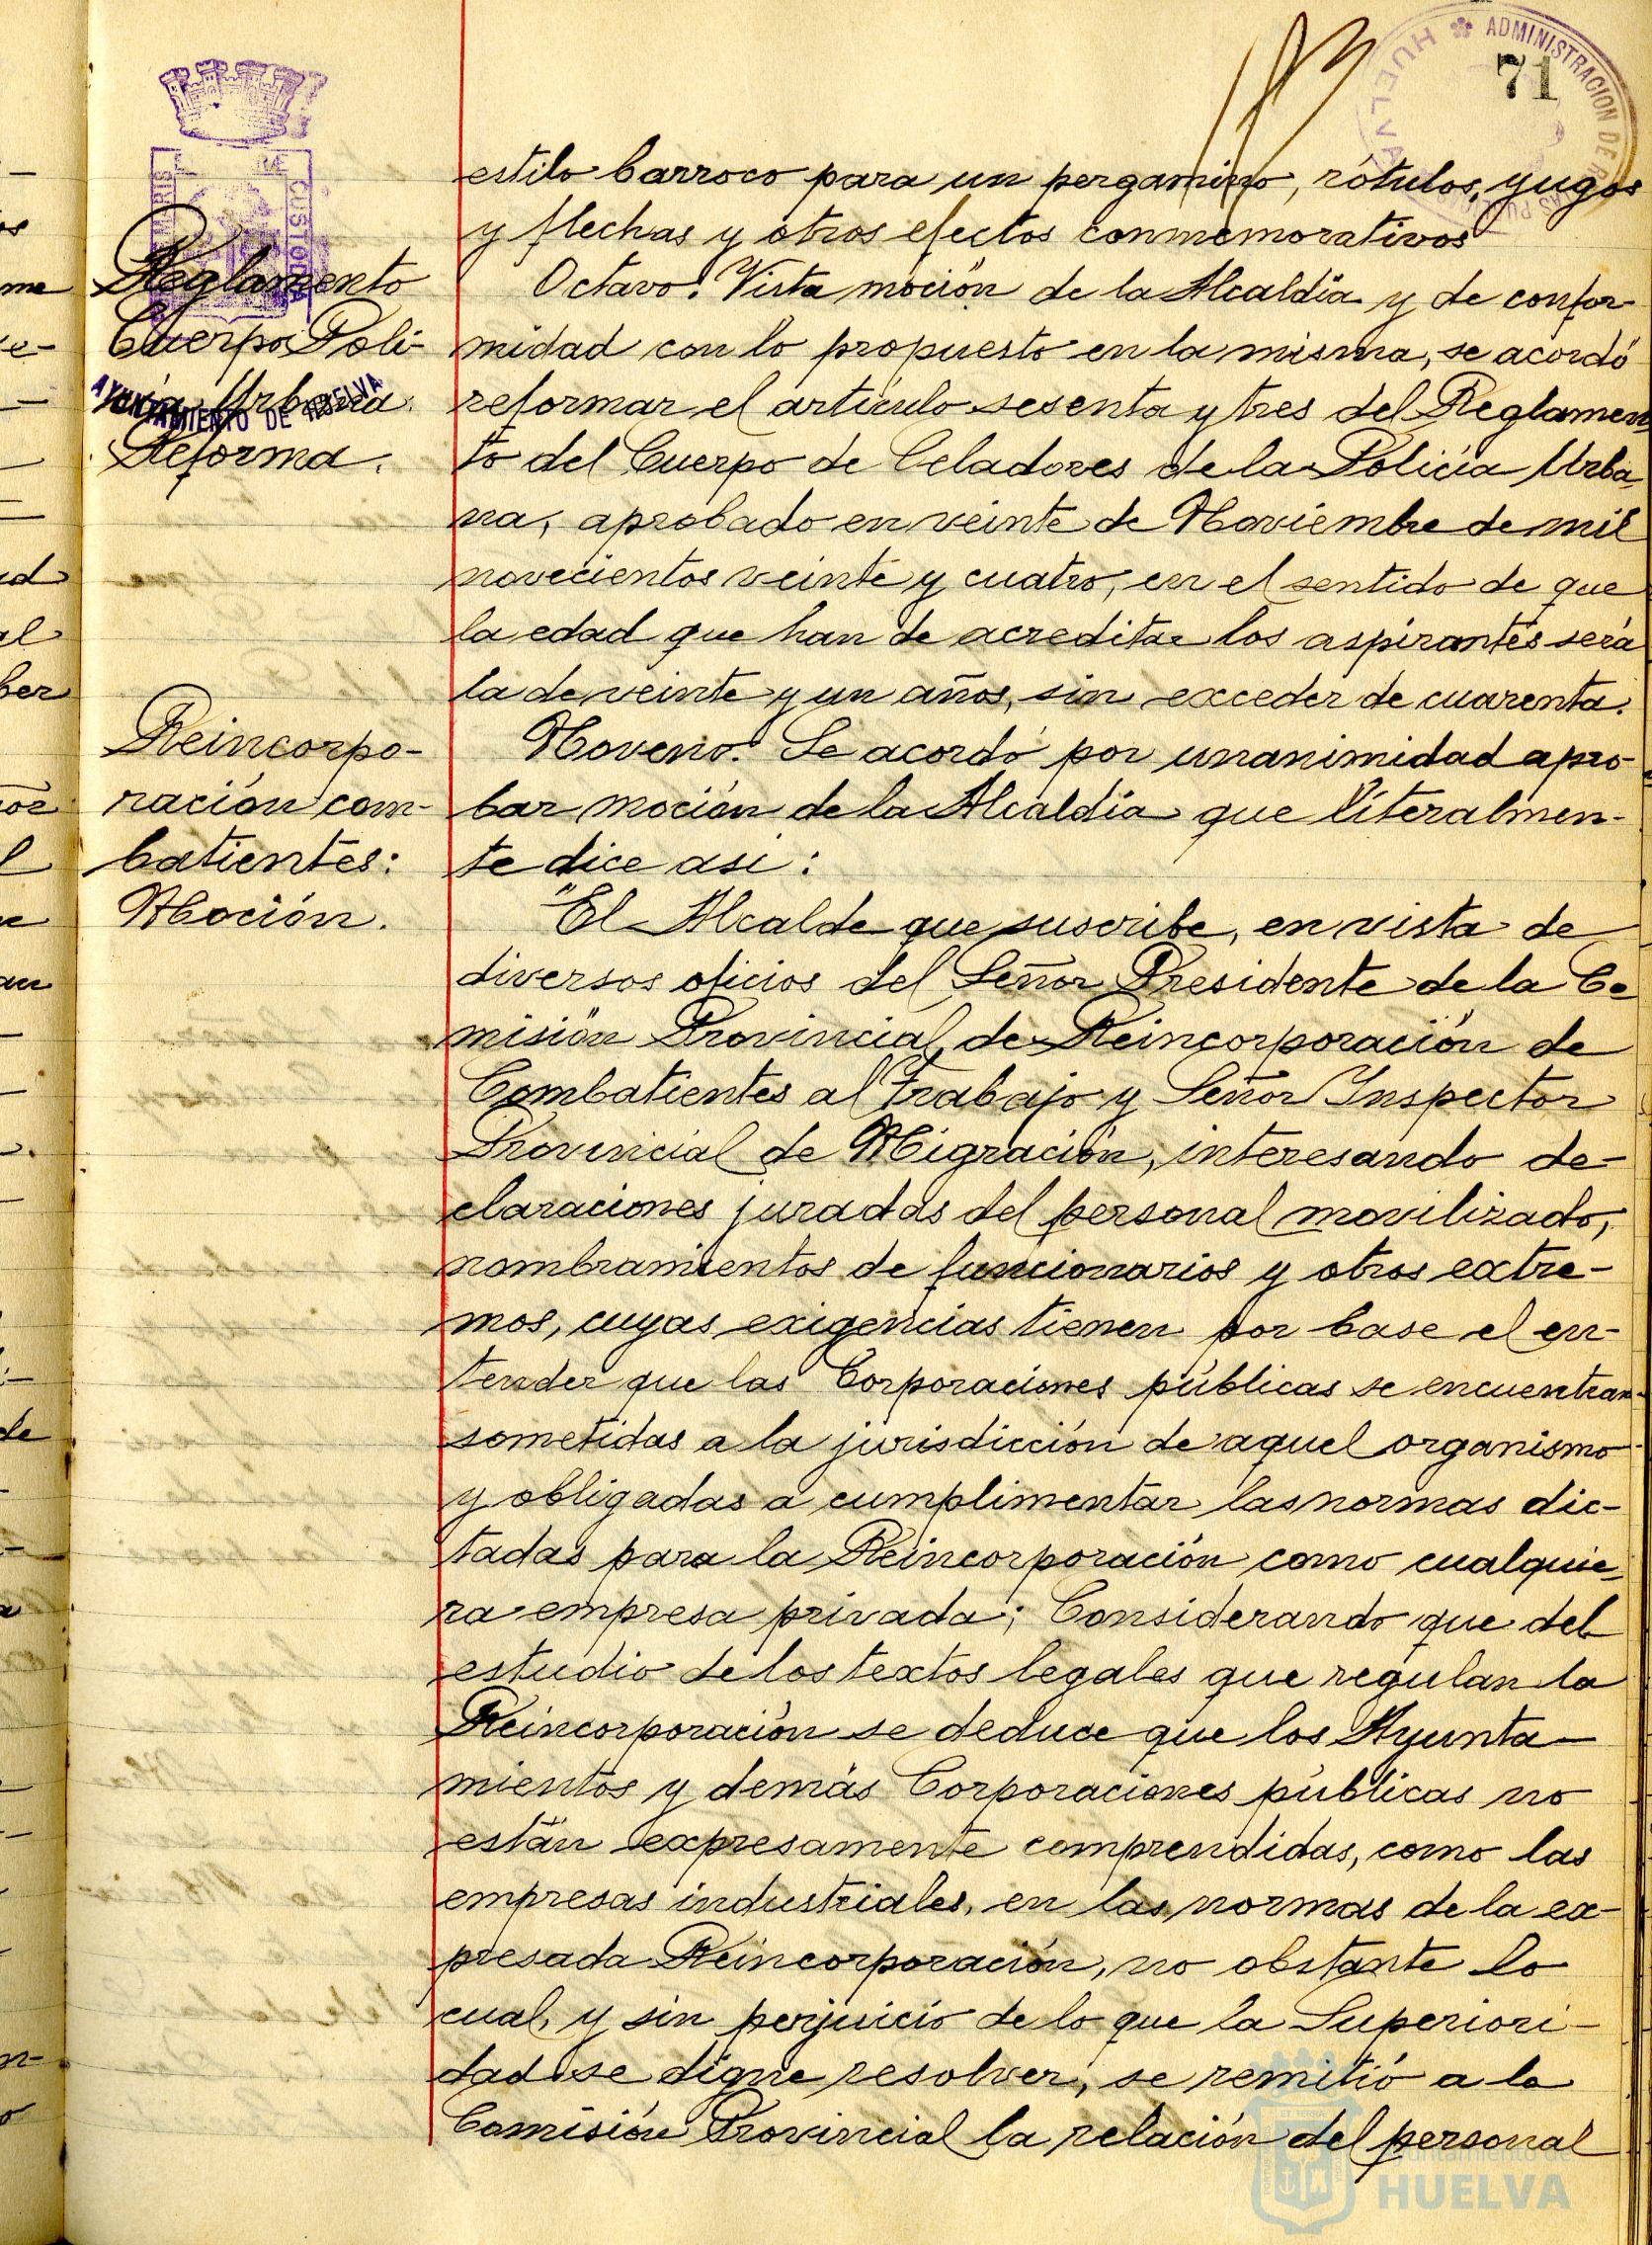 71
ADMINISTRACION DE
HUELVA
CUSTODIA
AYUNTAMIENTO DE HUELVA
estilo barroco para un pergamino, rótulos, yugos
y flechas y otros efectos conmemorativos
Reglamento
Cuerpo Poli-
cía Urbana.
Reforma.
Octavo. Vista moción de la Alcaldía y de confor-
midad con lo propuesto en la misma, se acordó
reformar el artículo sesenta y tres del Reglamen
to del Cuerpo de Celadores de la Policía Urba
na, aprobado en veinte de Noviembre de mil
novecientos veinte y cuatro, en el sentido de que
la edad que han de acreditar los aspirantes será
la de veinte y un años, sin exceder de cuarenta.
Reincorpo-
ración com-
batientes:
Moción.
Noveno. Se acordó por unanimidad apro-
bar moción de la Alcaldía que literalmen-
te dice asi:
"El Alcalde que suscribe, en vista de
diversos oficios del Señor Presidente de la Co
misión Provincial de Reincorporación de
Combatientes al Trabajo y Señor Inspector
Provincial de Migración, interesando de-
claraciones juradas del personal movilizado,
nombramientos de funcionarios y otros extre-
mos, cuyas exigencias tienen por base el en-
tender que las Corporaciones públicas se encuentran
sometidas a la jurisdicción de aquel organismo
y obligadas a cumplimentar las normas dic-
tadas para la Reincorporación como cualquie
ra empresa privada; Considerando que del
estudio de los textos legales que regulan la
Reincorporación se deduce que los Ayunta-
mientos y demás Corporaciones públicas no
están expresamente comprendidas, como las
empresas industriales, en las normas de la ex-
presada Reincorporación, no obstante lo
cual, y sin perjuicio de lo que la Superiori-
dad se digne resolver, se remitió a la
Comisión Provincial la relación del personal
Ayuntamiento de
HUELVA